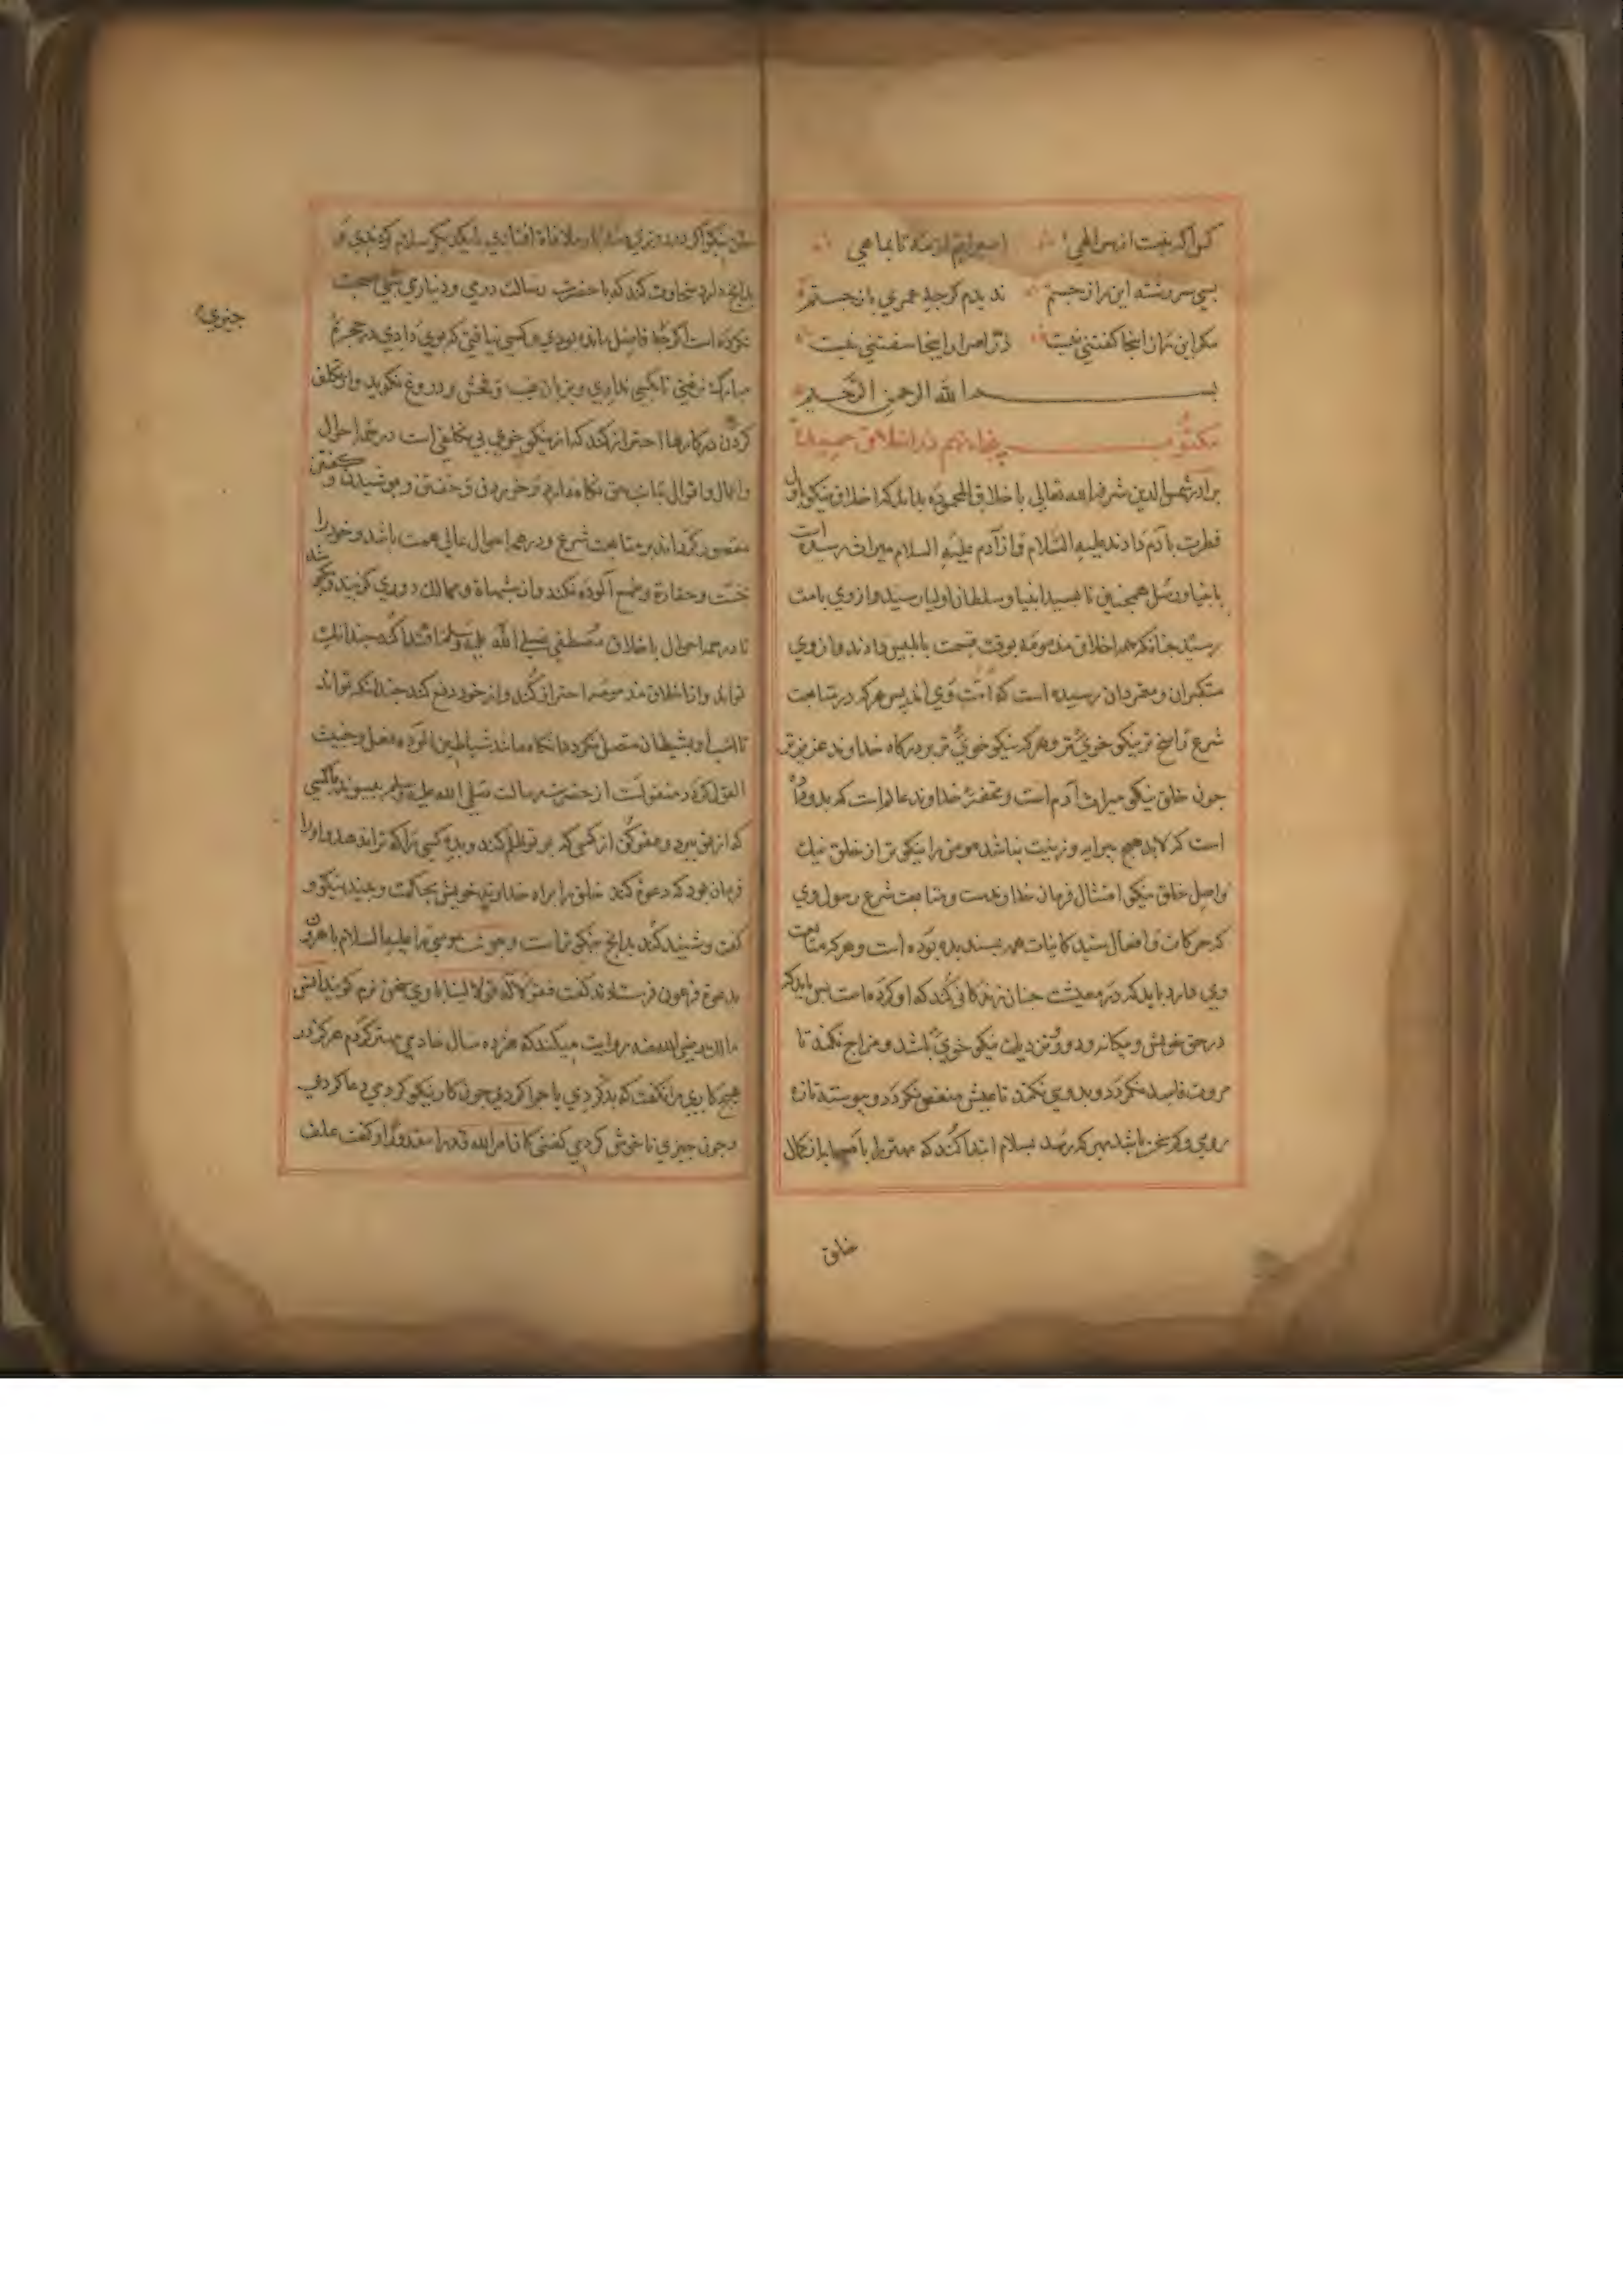 کس آگه نیست از سر الهی
بسی سررشته این راز جستم ندیدم گرچه عمری باز جستم
مگر این راز اینجا گفتنی نیست در اسرار اینجا سفتنی نیست
بسم الله الرحمن الرحیم
مکتوب پنجاه نهم در اخلاق حمیده
برادر شمس الدین شرفه الله تعالی باخلاق المحموده بداند که اخلاق نیکو باول
فطرت بآدم دادند علیه السلام و از آدم علیه السلام میراث رسیده است
بانبیا و رسل همچنین تا بسید انبیا و سلطان اولیا رسید و از وی بامت
رسید چنانکه همه اخلاق مذمومه بوقت قسمت بابلیس دادند و از وی
متکبران و متمردان رسیده است که امت وی اند پس هر که در متابعت
شرع راسخ تر نیکو خوی تر و هر که نیکو خوی تر بر درگاه خداوند عزیزتر
چون خلق نیکو میراث آدم است و تحفه خداوند عالم است که بدو داده
است که لابد هیچ پیرایه و زینت نباشد مومن را نیکوتر از خلق نیک
و اصل خلق نیکو امتثال فرمان خداوندست و متابعت شرع رسول وی
که حرکات و افعال سید کاینات همه پسندیده بوده است و هر که متابعت
وی دارد باید که در معیشت چنان زندگانی کند که او کرده است پس باید که
در حق خویش و بیگانه و دور و نزدیک نیکو خوی باشد و مزاح نکند تا
مروت فاسد نگردد و بدوی نکند تا عیش منغص نگردد و پیوسته تازه
روی و کم سخن باشد بهر که رسد بسلام ابتدا کند که مهتر ما با صحابه با کمال
خلق
بدانچه دارد سخاوت کند که با حضرت رسالت درمی و دیناری شبی صحبت
نکرده است اگر فاضل مانده بودی و کسی نیافتی که بوی دادی در حجره
مبارک نرفتی تا بکسی ندادی و بزبان غیبت و فحش و دروغ نگوید و از تکلف
کردن در کارها احتراز کند که از نیکو خویی بی تکلفی است در همه احوال
و اعمال و اقوال جانب حق نگاه دارد و خوردن و خفتن و پوشیدن و گفتن
مقصور گرداند بر متابعت شرع و در همه احوال عالی همت باشد و خود را
بخست و حقارة و طمع آلوده نکند و از شبهات و مهالک دوری گزیند
تا در همه احوال باخلاق مصطفی صلی الله علیه وسلم اقتدا کند چندانک
تواند و از اخلاق مذمومه احتراز کند و از خود دفع کند چندانکه تواند
تا انتساب او بشیطان متصل نگردد
منقولست از حضرت رسالت صلی الله علیه وسلم بپیوند با کسی
که از تو ببرد و عفو کن از کسی که بر تو ظلم کند و بده کسی را که ترا ندهد و او را
فرمان بود که دعوة کند خلق را براه خداوند خویش بحکمت و بپند نیکو و
گفت و شنید کند بدانچ نیکوتر است و چون موسی را علیه السلام با هرون
بدعوة فرعون فرستادند گفت فقولا له قولا لینا با وی سخن نرم گویید انس
مالک رضی الله عنه روایت میکند که هژده سال خادمی مهتر کردم هرگز در
هیچ کاری مرا نگفت که بد کردی یا چرا کردی چون کار نیکو کردمی دعا کردی
و چون چیزی ناخوش کردمی گفتی کان امر الله قدرا مقدورا و گفت علف